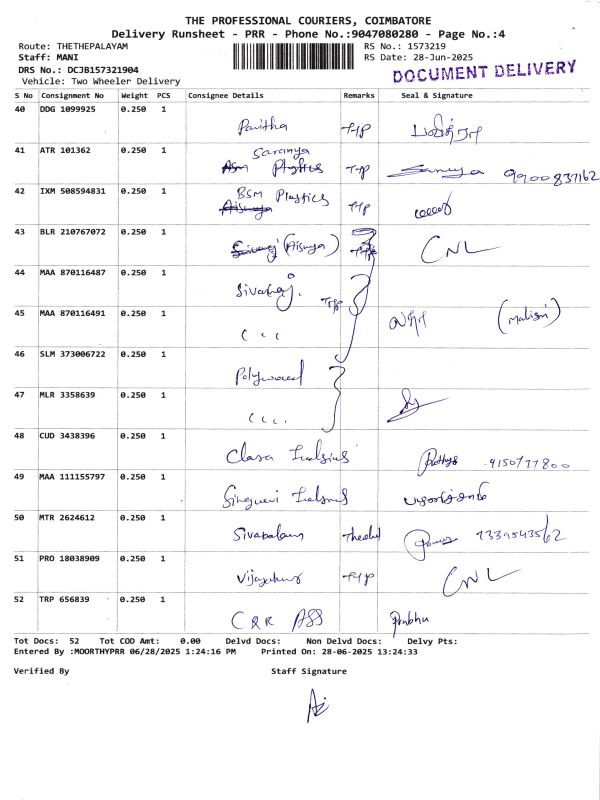 THE PROFESSIONAL COURIERS, COIMBATORE
Delivery Runsheet - PRR - Phone No.:9047080280 - Page No.:4
Route: THETHEPALAYAM RS No.: 1573219
Staff: MANI RS Date: 28-Jun-2025
DRS No.: DCJB157321904 DOCUMENT DELIVERY
Vehicle: Two Wheeler Delivery
S No Consignment No Weight PCS Consignee Details Remarks Seal & Signature
40 DDG 1099925 0.250 1
Pavitha TTP பவித்ரா
41 ATR 101362 0.250 1 Saranya
Plastics TTP Saranya 9900837162
42 IXM 508594831 0.250 1 BSM Plastics
TTP
43 BLR 210767072 0.250 1
(Aiswya) TTP CNL
44 MAA 870116487 0.250 1
Sivabaj. TTP
45 MAA 870116491 0.250 1
( ( ( (Malini)
46 SLM 373006722 0.250 1
Polywood
47 MLR 3358639 0.250 1
( ( ( .
48 CUD 3438396 0.250 1
Clasa 9150777800
49 MAA 111155797 0.250 1
Singuvi
50 MTR 2624612 0.250 1
Sivabalan 7339543562
51 PRO 18038909 0.250 1
Vijayakumar TTP CNL
52 TRP 656839 0.250 1
CRR ASS Prabhu
Tot Docs: 52 Tot COD Amt: 0.00 Delvd Docs: Non Delvd Docs: Delvy Pts:
Entered By :MOORTHYPRR 06/28/2025 1:24:16 PM Printed On: 28-06-2025 13:24:33
Verified By Staff Signature